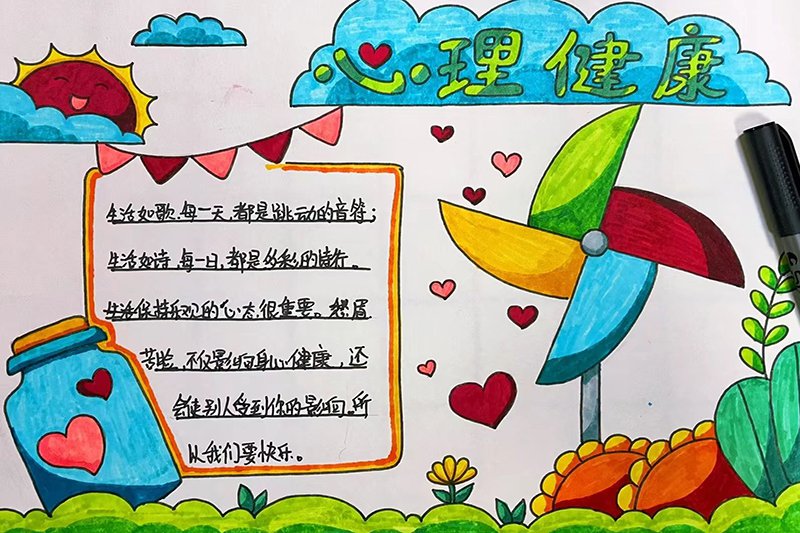 心理健康
生活如歌,每一天,都是跳动的音符;
生活如诗,每一日,都是多彩的诗行。
生活保持乐观的心态,很重要。愁眉
苦脸,不仅影响身心健康,还
会使别人受到你的影响。所
以我们要快乐。